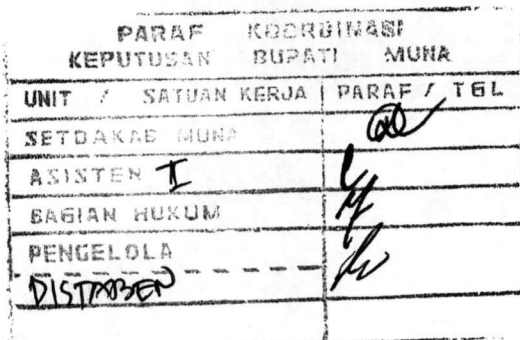 PARAF KOORDINASI
KEPUTUSAN BUPATI MUNA
UNIT / SATUAN KERJA PARAF / TGL
SETDAKAB MUNA
ASISTEN I
BAGIAN HUKUM
PENGELOLA
DISTAMBEN